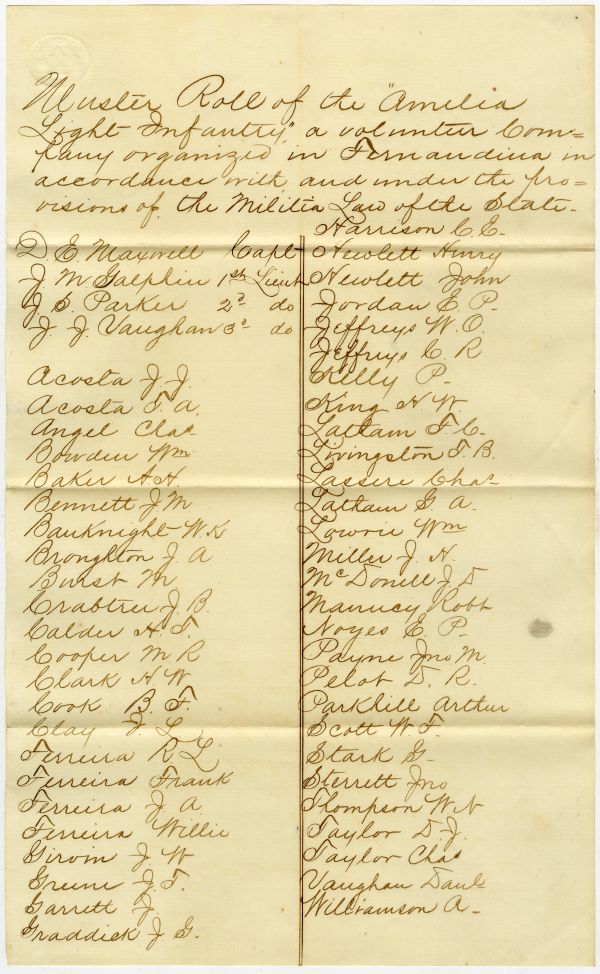 Muster Roll of the "Amelia
Light Infantry," a volunteer Com=
pany organized in Fernandina in
accordance with, and under the pro=
visions of the Militia Law of the State.
D E Maxwell Capt
J. M. Galphin 1st Lieut
J. S. Parker 2d do
J. J. Vaughan 3d do
Acosta J. J.
Acosta T. A.
Angel Chas
Bowden Wm
Baker A. H.
Bennett J. M
Bauknight W. K
Broughton J. A
Burst M
Crabtree J. B.
Calder H. T.
Cooper M R
Clark H. W
Cook B. F.
Clay J. L
Ferreira R L
Ferreira Frank
Ferreira J. A
Ferreira Willie
Girvin J. W
Greene J. T.
Garrett J.
Graddick J. G.
Harrison C. E.
Hewlett Henry
Hewlett John
Jordan E. P.
Jeffreys W. O.
Jeffreys C. R
Kelly P.
King H. W.
Latham T. C.
Livingston T. B.
Lassere Chas
Latham G. A.
Lowrie Wm
Miller J. H.
McDonell J. D
Manucy Robt
Noyes E. P.
Payne Jno. M.
Pelot D. R.
Parkhill Arthur
Scott W. F.
Stark G.
Sterrett Jno
Thompson W. N
Taylor D. J.
Taylor Chas
Vaughan Danl
Williamson A.